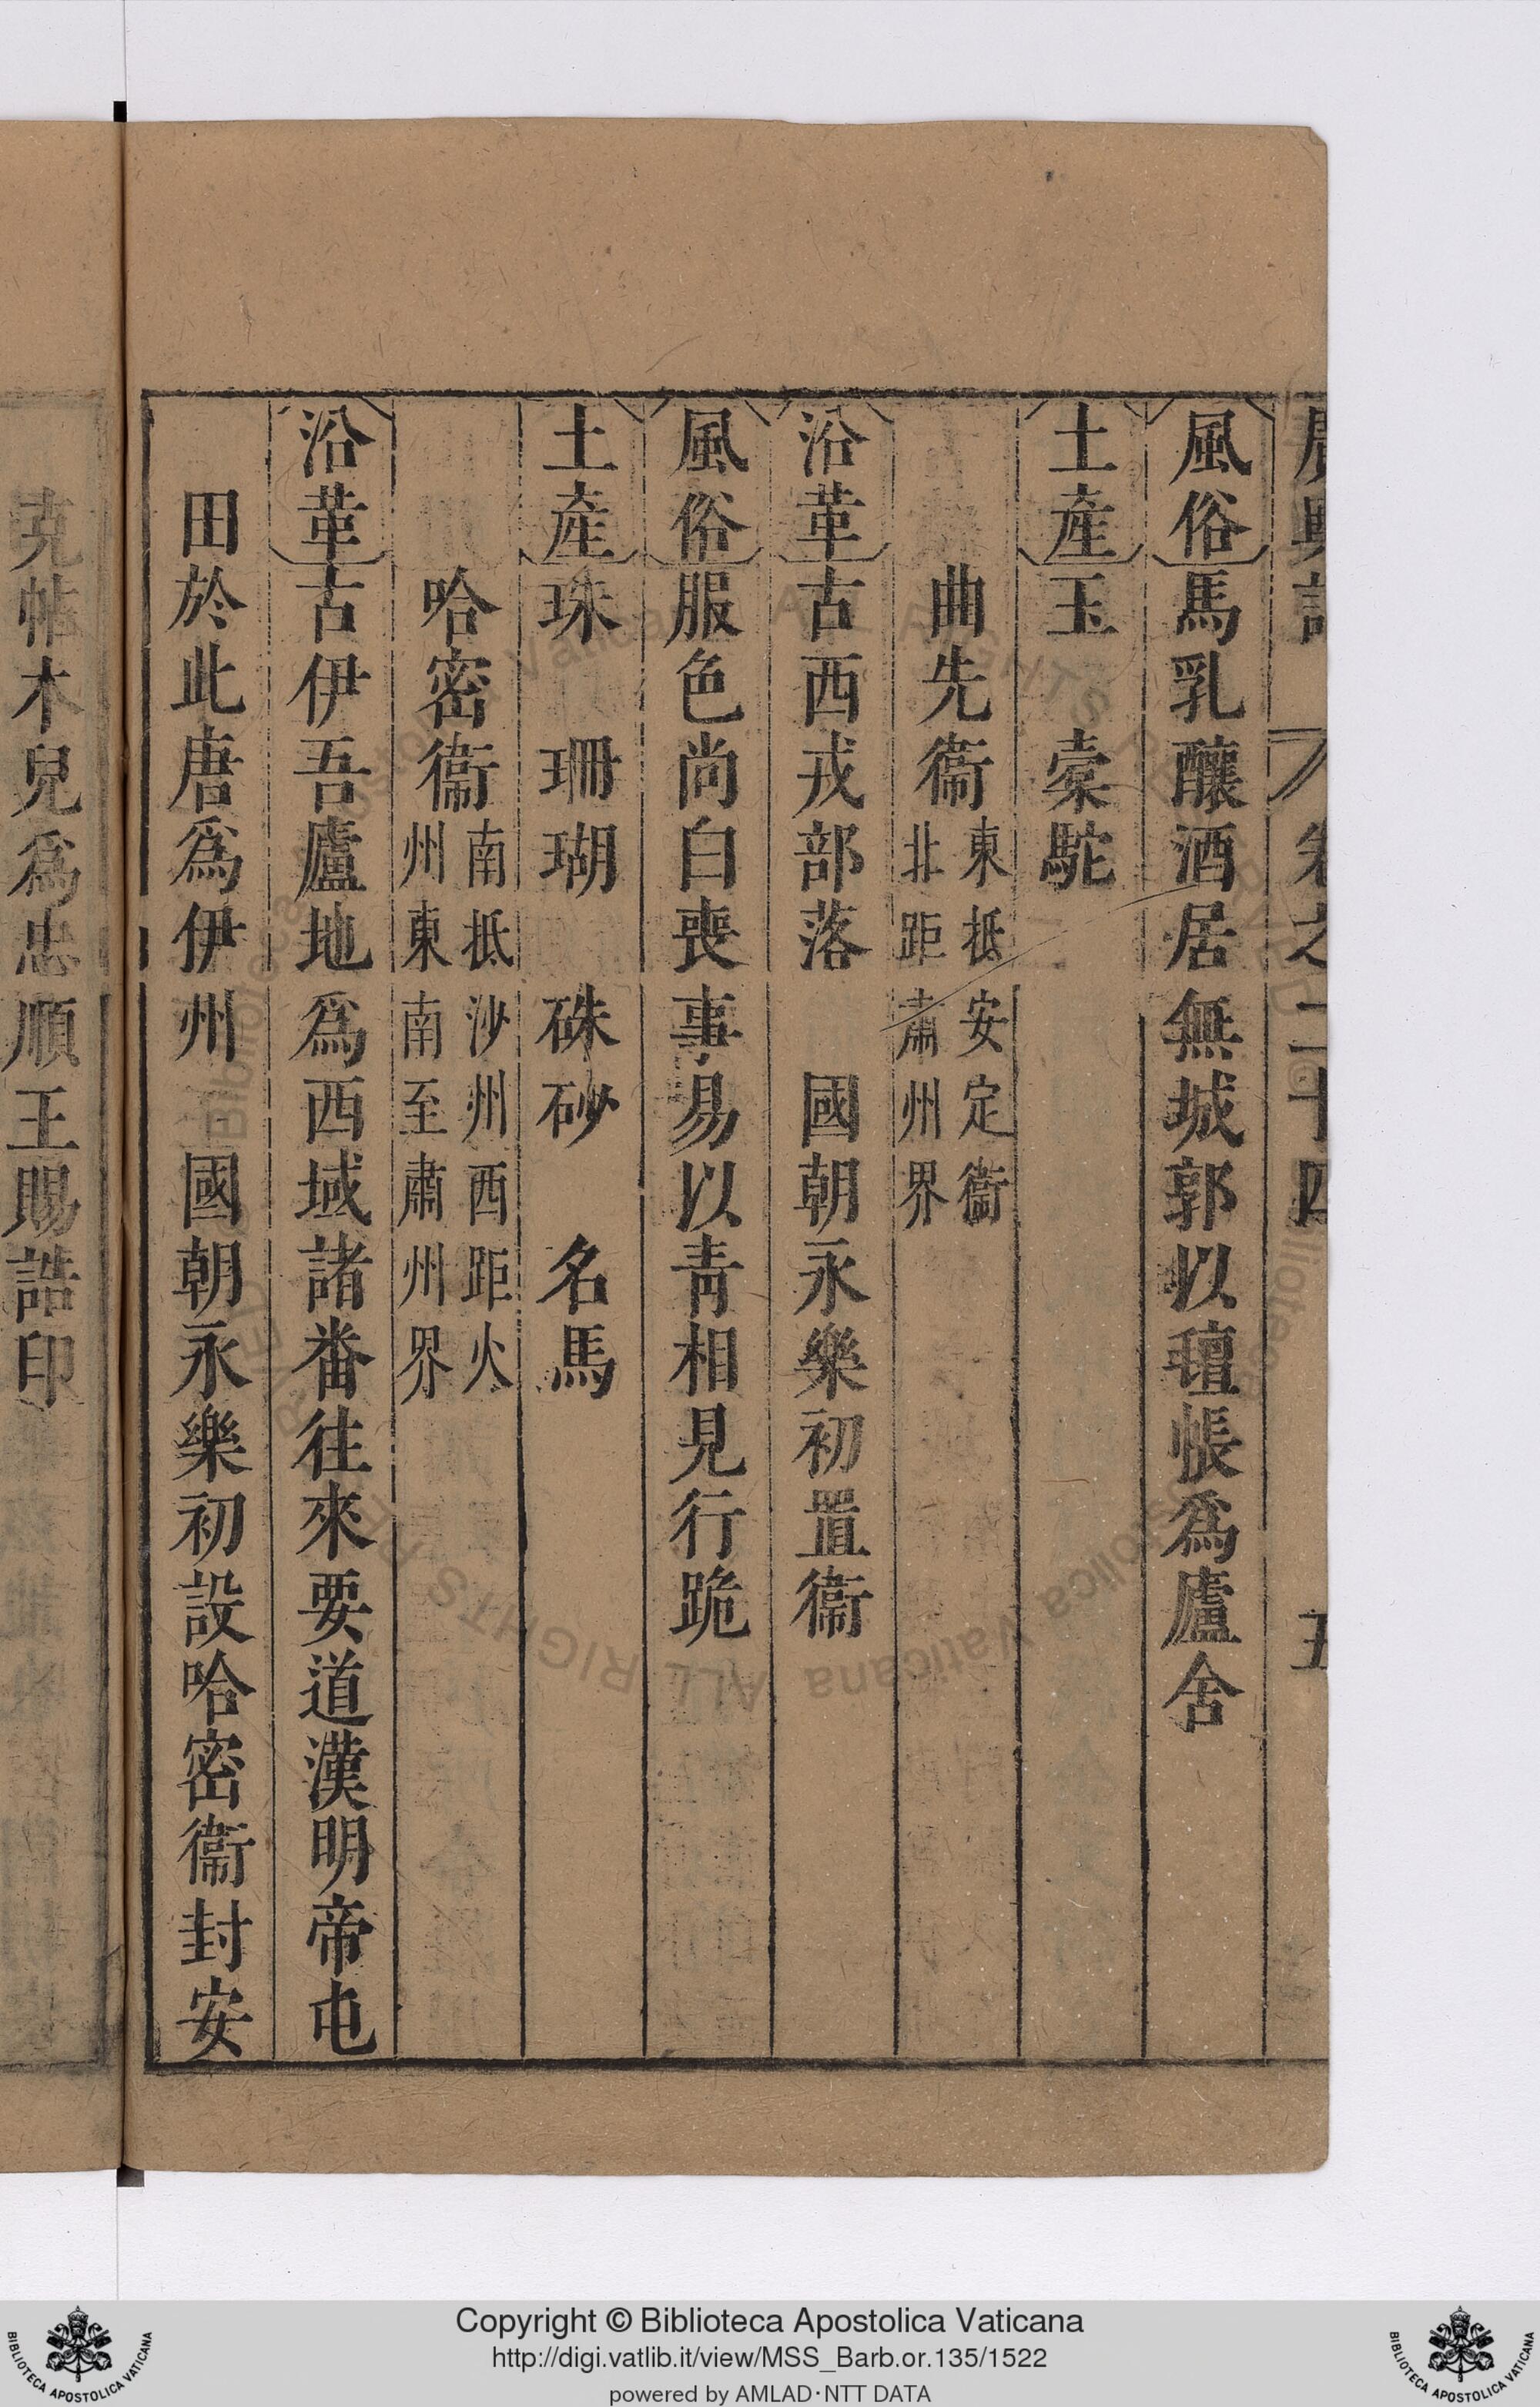 風俗馬乳釀酒居無城郭以氊帳爲廬舍
土産玉　橐駝
曲先衞東抵安定衞
北距肅州界
沿革古西戎部落　國朝永樂初置衞
風俗服色尚白喪事易以青相見行跪
土産珠　珊瑚　硃砂　名馬
哈密衞南抵沙州西距火
州東南至肅州界
沿革古伊吾廬地爲西域諸番往來要道漢明帝屯
田於此唐爲伊州　國朝永樂初設哈密衞封安
克帖木兒爲忠順王賜誥印
卷之二十四
五
Copyright © Biblioteca Apostolica Vaticana
http://digi.vatlib.it/view/MSS_Barb.or.135/1522
powered by AMLAD·NTT DATA
BIBLIOTECA APOSTOLICA VATICANA
BIBLIOTECA APOSTOLICA VATICANA